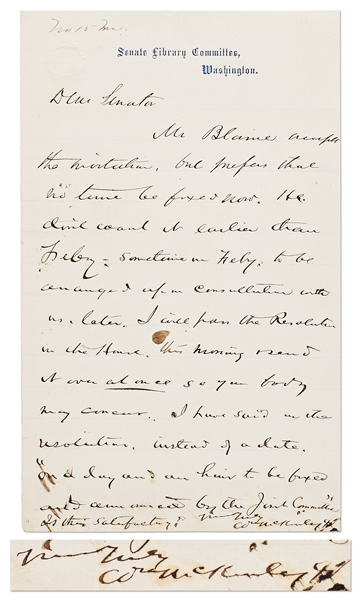 Senate Library Committee,
Washington.
Dear Senator
Mr Blaine accepts
the invitation, but prefers that
no time be fixed now. He
don't want it earlier than
Feby - sometime in Feby. to be
arranged upon consultation with
us later. I will pass the Resolution
in the House this morning & send
it over at once so your body
may concur. I have said in the
resolution, instead of a date.
"on a day and an hour to be fixed
and announced by the Joint Committee"
Is this satisfactory? Yours truly
Wm McKinley Jr
Yours truly
Wm McKinley Jr